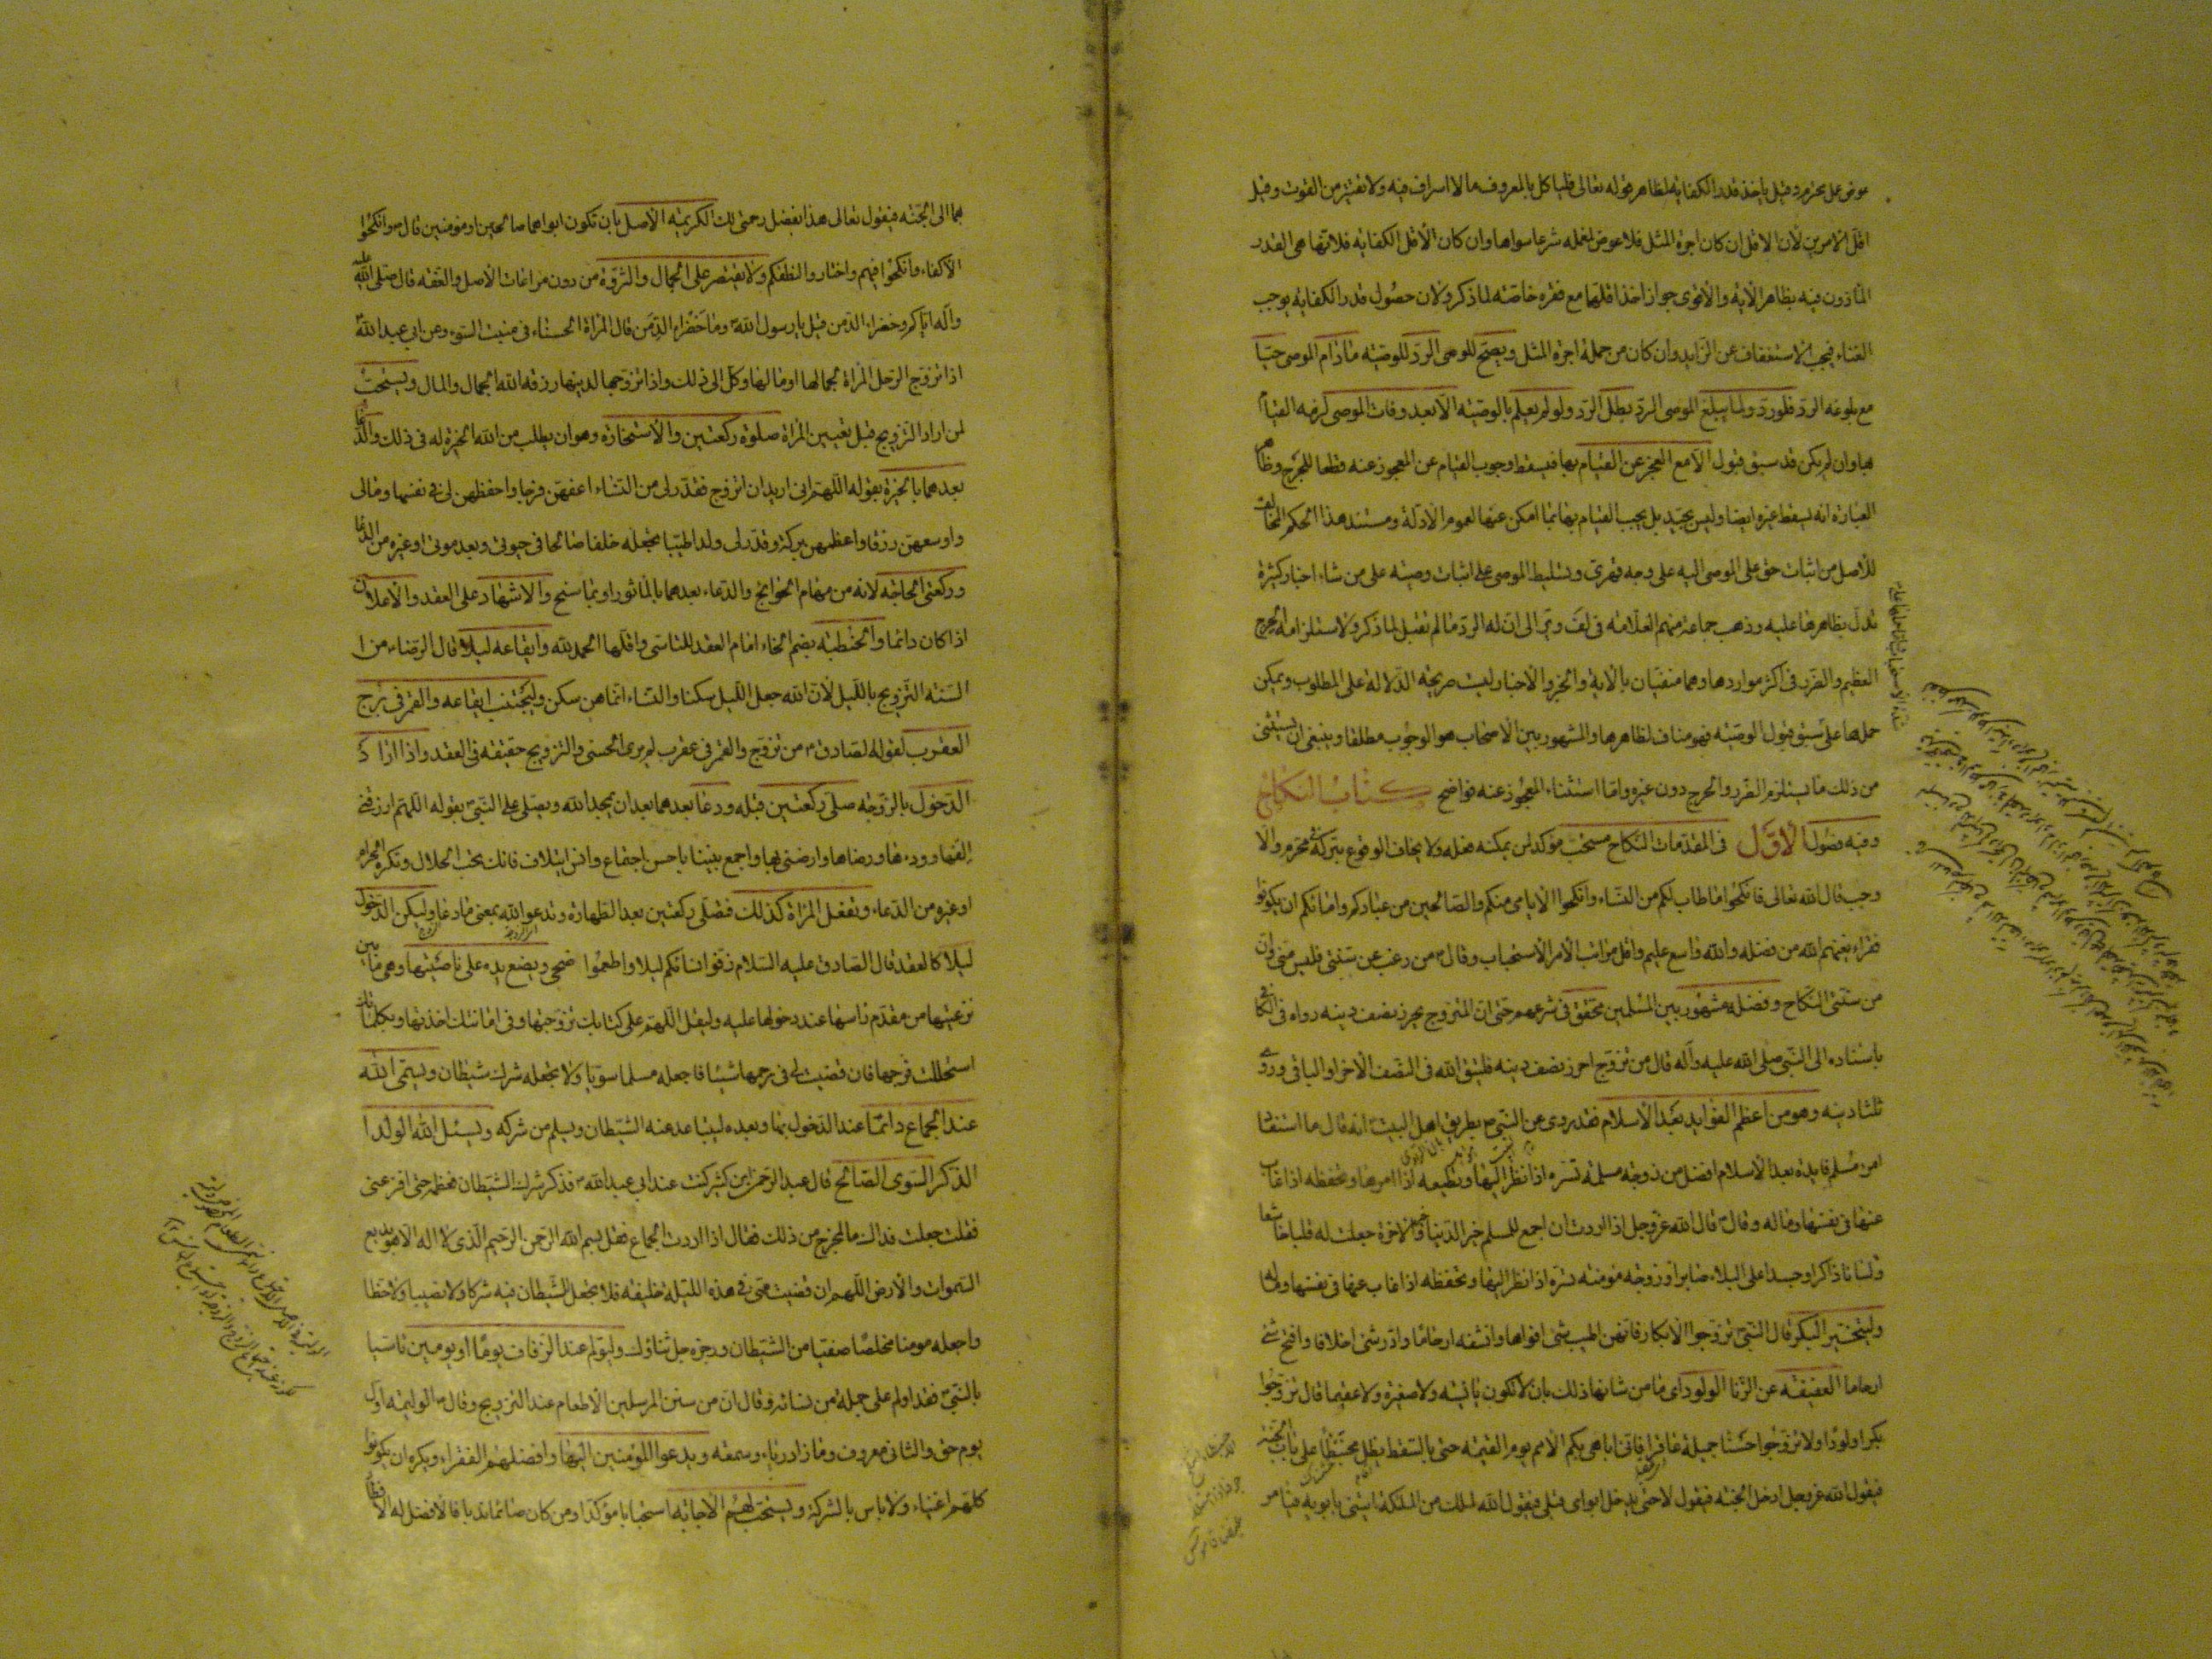 عوض عمل محترم وقيل ياخذ قدر الكفاية لظاهر قوله تعالى فلياكل بالمعروف ما لا اسراف فيه ولا تقتير من القوت وقيل
اقل الامرين لان الاقل ان كان اجرة المثل فلا عوض لعمله شرعا سواها وان كان الاقل الكفاية فلانها هي القدر
الماذون فيه بظاهر الاية والاقوى جواز اخذ اقلهما مع فقره خاصة لما ذكر ولان حصول قدر الكفاية يوجب
الغناء فيجب الاستعفاف عن الزايد وان كان من جملة اجرة المثل ويصح للوصي الرد للوصية مادام الموصي حيا
مع بلوغه الرد فلو رد ولما يبلغ الموصي الرد بطل الرد ولو لم يعلم بالوصية الا بعد وفات الموصي لزمه القيام
بها وان لم يكن قد سبق قبول الا مع العجز عن القيام بها فيسقط وجوب القيام عن المعجوز عنه قطعا للحرج وظاهر
العبارة انه يسقط غيره ايضا وليس بجيد بل يجب القيام بها بما امكن عنها لعموم الادلة ومستند هذا الحكم المخالف
للاصل من اثبات حق على الموصى اليه على وجه قهري وتسليط الموصي على اثبات وصيته على من شاء اخبار كثيرة
تدل بظاهرها عليه وذهب جماعة منهم العلامة في لف وير الى ان له الرد ما لم تقبل لما ذكر ولاستلزامه الحرج
العظيم والضرر في اكثر مواردها وهما منفيان بالاية والخبر والاخبار ليست صريحة الدلالة على المطلوب ويمكن
حملها على سبق قبول الوصية فهو مناف لظاهرها والمشهور بين الاصحاب هو الوجوب مطلقا وينبغي ان يستثنى
من ذلك ما يستلزم الضرر والحرج دون غيره واما استثناء المعجوز عنه فواضح كتاب النكاح
وفيه فصول الاول في المقدمات النكاح مستحب مؤكد لمن يمكنه فعله ولا يخاف الوقوع بتركه في محرم والا
وجب قال الله تعالى فانكحوا ما طاب لكم من النساء وانكحوا الايامى منكم والصالحين من عبادكم وامائكم ان يكونوا
فقراء يغنهم الله من فضله والله واسع عليم واقل مراتب الامر الاستحباب وقال ص من رغب عن سنتي فليس مني وان
من سنتي النكاح وفضله مشهور بين المسلمين محقق في شرعهم حتى ان المتزوج يحرز نصف دينه رواه في الكافي
باسناده الى النبي صلى الله عليه وآله قال من تزوج احرز نصف دينه فليتق الله في النصف الاخر او الباقي وروى
ثلثا دينه وهو من اعظم الفوايد بعد الاسلام فقد روى عن النبي ص بطريق اهل البيت انه قال ما استفاد
امرء مسلم فايدة بعد الاسلام افضل من زوجة مسلمة تسره اذا نظر اليها وتطيعه اذا امرها وتحفظه اذا غاب
عنها في نفسها وماله وقال ص قال الله عز وجل اذا اردت ان اجمع للمسلم خير الدنيا والاخرة جعلت له قلبا خاشعا
ولسانا ذاكرا وجسدا على البلاء صابرا وزوجة مؤمنة تسره اذا نظر اليها وتحفظه اذا غاب عنها في نفسها وماله
وليتخير البكر قال النبي ص تزوجوا الابكار فانهن اطيب شئ افواها وانشفه ارحاما وادر شئ اخلافا وافتح شئ
ارحاما العفيفة عن الزنا الولود اي ما من شانها ذلك بان لا تكون يائسة ولا صغيرة ولا عقيما قال تزوجوا
بكرا ولودا ولا تزوجوا حسناء جميلة عاقرا فاني اباهي بكم الامم يوم القيمة حتى بالسقط يظل محبنطئا على باب الجنة
فيقول الله عز وجل ادخل الجنة فيقول لا حتى يدخل ابواي قبلي فيقول الله لملك من الملئكة ائتني بابويه فيامر
بهما الى الجنة فيقول تعالى هذا بفضل رحمتي لك الكريمة الاصل بان تكون ابواها صالحين او مؤمنين قال ص وانكحوا
الاكفاء وانكحوا فيهم واختاروا لنطفكم ولا يقتصر على الجمال والثروة من دون مراعات الاصل والعفة قال صلى الله عليه
وآله اياكم وخضراء الدمن قيل يا رسول الله ص وما خضراء الدمن قال المراة الحسناء في منبت السوء وعن ابي عبد الله ع
اذا تزوج الرجل المراة لجمالها او مالها وكل الى ذلك واذا تزوجها لدينها رزقه الله الجمال والمال ويستحب
لمن اراد التزويج قبل تعيين المراة صلوة ركعتين والاستخارة وهو ان يطلب من الله الخيرة له في ذلك والدعاء
بعدهما بالخيرة بقوله اللهم اني اريد ان اتزوج فقدر لي من النساء اعفهن فرجا واحفظهن لي في نفسها ومالي
واوسعهن رزقا واعظمهن بركة وقدر لي ولدا طيبا تجعله خلفا صالحا في حيوتي وبعد موتي او غيره من الدعاء
وركعتي الحاجة لانه من مهام الحوايج والدعاء بعدهما بالماثور او بما سنح والاشهاد على العقد والاعلان
اذا كان دائما والخطبة بضم الخاء امام العقد للتاسي واقلها الحمد لله وايقاعه ليلا قال الرضا ع من ا
السنة التزويج بالليل لان الله جعل الليل سكنا والنساء انما هن سكن وليجتنب ايقاعه والقمر في برج
العقرب لقوله الصادق ع من تزوج والقمر في عقرب لم ير الحسنى والتزويج حقيقة في العقد واذا اراد
الدخول بالزوجة صلى ركعتين قبله ودعا بعدهما بعد ان يمجد الله ويصلي على النبي ص بقوله اللهم ارزقني
الفها وودها ورضاها وارضني بها واجمع بيننا باحسن اجتماع وانس ايتلاف فانك تحب الحلال وتكره الحرام
او غيره من الدعاء وتفعل المراة كذلك فتصلي ركعتين بعد الطهارة وتدعو الله بمعنى ما دعا وليكن الدخول
ليلا كالعقد قال الصادق عليه السلام زفوا نسائكم ليلا واطعموا ضحى ويضع يده على ناصيتها وهي ما بين
نزعتيها من مقدم راسها عند دخولها عليه وليقل اللهم على كتابك تزوجتها وفي امانتك اخذتها وبكلماتك
استحللت فرجها فان قضيت لي في رحمها شيئا فاجعله مسلما سويا ولا تجعله شرك شيطان ويسمي الله
عند الجماع دائما عند الدخول بها وبعده ليتباعد عنه الشيطان ويسلم من شركه ويسئل الله الولد ا
الذكر السوي الصالح قال عبد الرحمن بن كثير كنت عند ابي عبد الله ع فذكر شرك الشيطان فعظمه حتى افزعني
فقلت جعلت فداك ما المخرج من ذلك فقال اذا اردت الجماع فقل بسم الله الرحمن الرحيم الذي لا اله الا هو بديع
السموات والارض اللهم ان قضيت مني في هذه الليلة خليفة فلا تجعل للشيطان فيه شركا ولا نصيبا ولا حظا
واجعله مومنا مخلصا صفيا من الشيطان ورجزه جل ثناؤك وليولم عند الزفاف يوما او يومين تاسيا
بالنبي ص فقد اولم على جملة من نسائه وقال ان من سنن المرسلين الاطعام عند التزويج وقال ص الوليمة اول
يوم حق والثاني معروف وما زاد رياء وسمعة ويدعوا المؤمنين اليها وافضلهم الفقراء ويكره ان يكونوا
كلهم اغنياء ولا باس بالشركة ويستحب لهم الاجابة استحبابا مؤكدا ومن كان صائما ندبا فالافضل له الافطار